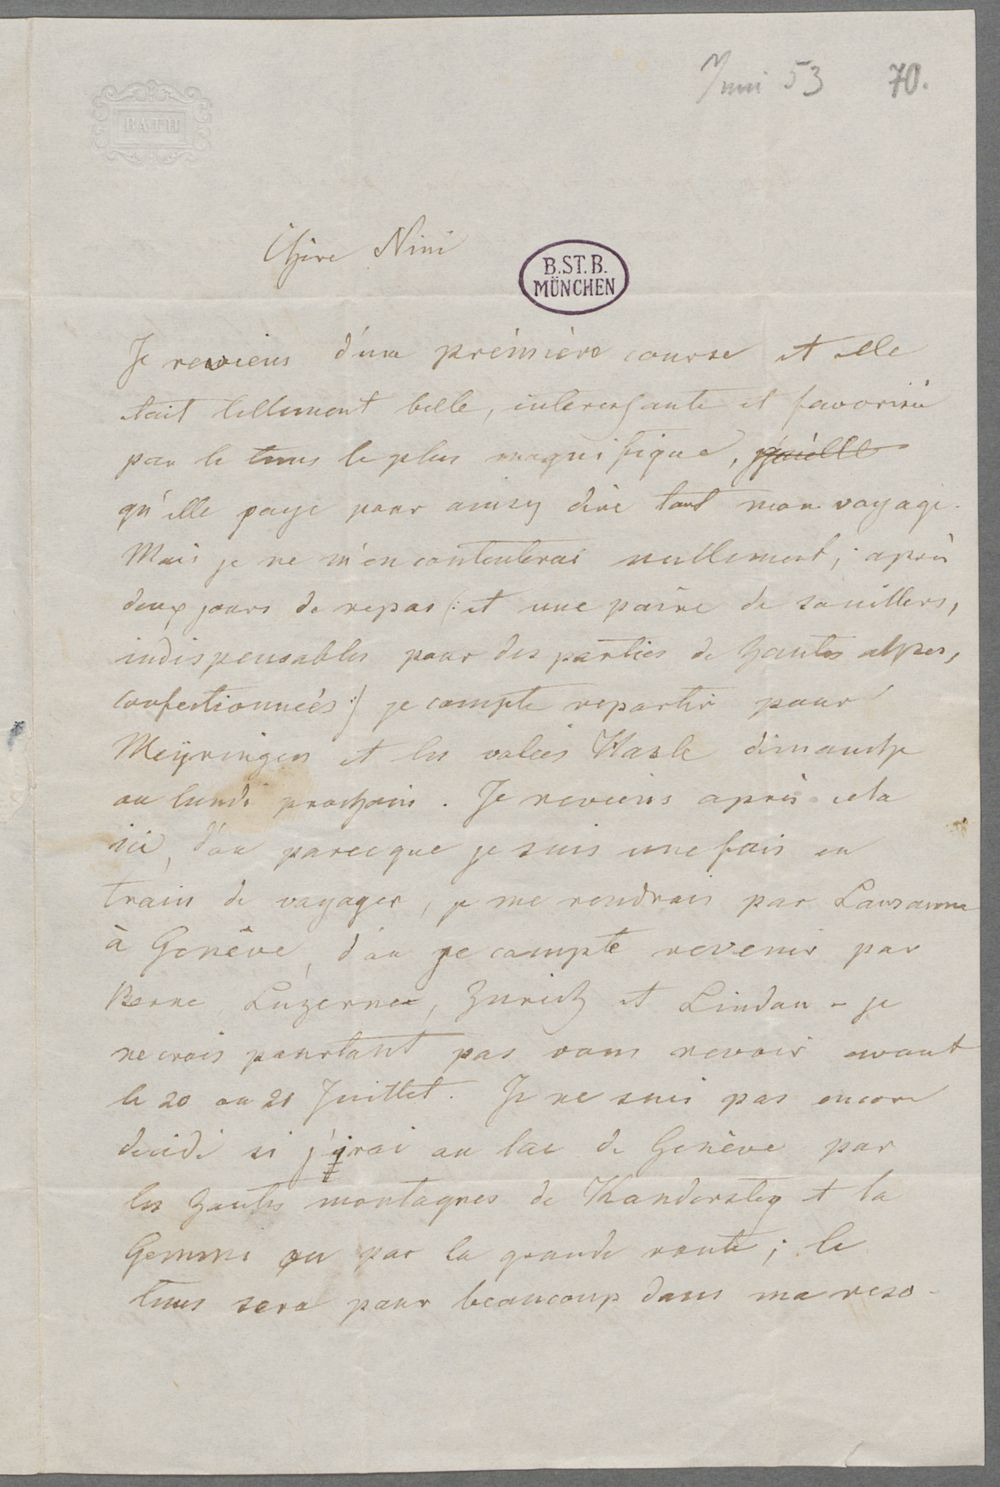 Juni 53 70.
BATH
Chère Nini
B.ST.B.
MÜNCHEN
Je reviens d'une prémière course et elle
etait tellement belle, interessante et favorisée
par le tems le plus magnifique, qu'elle
qu'elle paye pour ainsy dire tout mon voyage.
Mais je ne m'en contenterai nullement; après
deux jours de repas (: et une paire de souillers,
indispensables pour des parties de hautes alpes,
confectionnées :) je compte repartir pour
Meyringen et les valées Hasle dimanche
ou lundi prochain. Je reviens après cela
ici, d'ou parceque je suis une fois en
train de voyager, je me rendrais par Lausanne
à Genêve, d'ou je compte revenir par
Berne, Luzerne, Zurich et Lindau – je
ne crois pourtant pas vous revoir avant
le 20 ou 21 Juillet. Je ne suis pas encore
decidé si j'irai au lac de Genève par
les hautes montagnes de Kandersteg et la
Gemmi ou par la grande route; le
tems sera pour beaucoup dans ma reso-